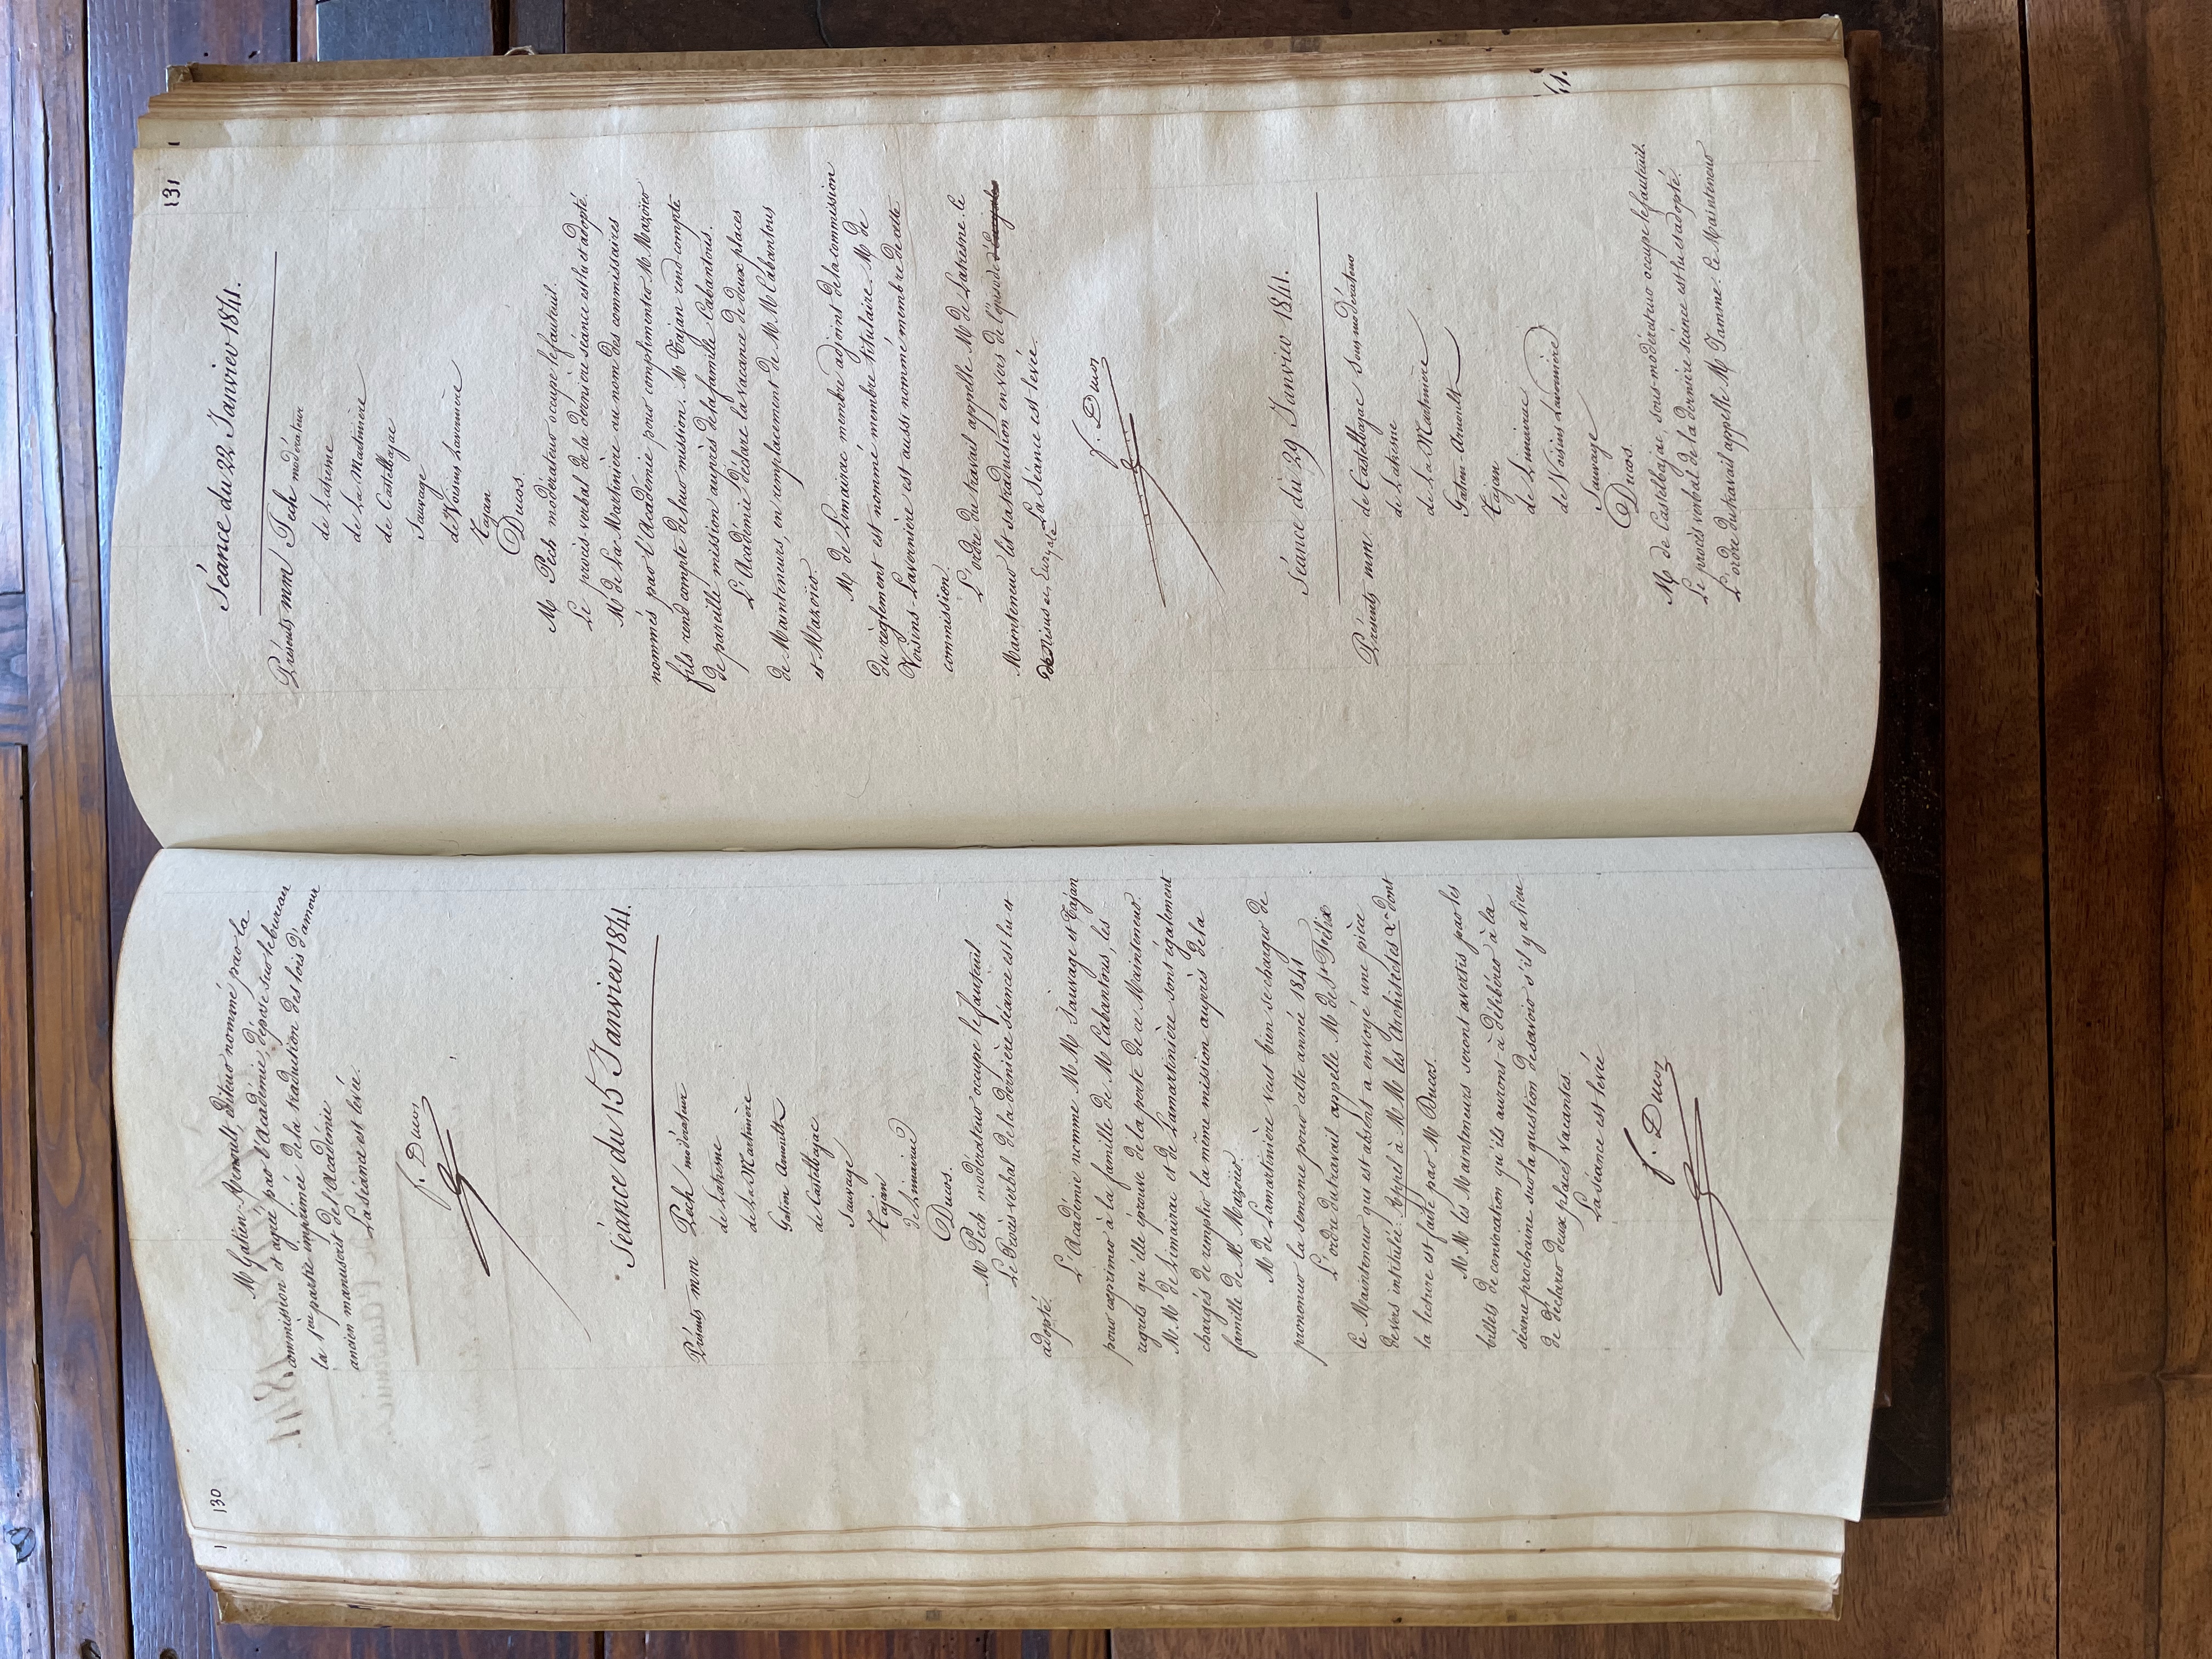 130
Mr Gatien-Arnoult, éditeur nommé par la
commission et agréé par l'Académie, dépose sur le bureau
la 1ere partie imprimée de la traduction des lois d'amour
ancien manuscrit de l'Académie
La séance est levée.
f. Ducos
Séance du 15 Janvier 1841.
Présents mm Pech modérateur
de Latresne
de La Martinière
Gatien Arnoult
de Castelbajac
Sauvage
Tajan
de Limairac
Ducos.
Mr Pech modérateur occupe le fauteuil.
Le Procès verbal de la dernière séance est lu et
adopté.
L'Académie nomme MM. Sauvage et Tajan
pour exprimer à la famille de Mr Cabantous, les
regrets qu'elle éprouve de la perte de ce Mainteneur.
MM. de Limairac et de Lamartinière sont également
chargés de remplir la même mission auprès de la
famille de Mr Mazoier.
Mr de Lamartinière veut bien se charger de
prononcer la semonce pour cette année 1841
L'ordre du travail appelle Mr de St Félix
Ce Mainteneur qui est absent a envoyé une pièce
de vers intitulée: Appel à MM les Architectes &c dont
la lecture est faite par Mr Ducos.
MM les Mainteneurs seront avertis par les
billets de convocation qu'ils auront à délibérer à la
séance prochaine sur la question de savoir s'il y a lieu
de déclarer deux places vacantes.
La séance est levée
f. Ducos
131
Séance du 22 Janvier 1841.
Présents mm Pech modérateur
de Latresne
de La Martinière
de Castelbajac
Sauvage
de Voisins Lavernière
Tajan
Ducos.
Mr Pech modérateur occupe le fauteuil.
Le procès verbal de la dernière séance est lu et adopté.
Mr de La Martinière au nom des commissaires
nommés par l'Académie pour complimenter Mr Mazoier
fils rend compte de leur mission. Mr Tajan rend compte
de pareille mission auprès de la famille Cabantous.
L'Académie déclare la vacance de deux places
de Mainteneurs, en remplacement de MM Cabantous
et Mazoier.
Mr de Limairac membre adjoint de la commission
du règlement est nommé membre titulaire. Mr de
Voisins-Lavernière est aussi nommé membre de cette
commission.
L'ordre du travail appelle Mr de Latresne. Ce
Mainteneur lit sa traduction en vers de l'épisode
de Nisus et Euryale. La Séance est levée.
f. Ducos
Séance du 29 Janvier 1841.
Présents mm. de Castelbajac sous-modérateur
de Latresne
de La Martinière
Gatien-Arnoult
Tajan
de Limairac
de Voisins Lavernière
Sauvage
Ducos.
Mr de Castelbajac, sous-modérateur occupe le fauteuil.
Le procès verbal de la dernière séance est lu et adopté.
L'ordre du travail appelle Mr Jamme. Ce Mainteneur